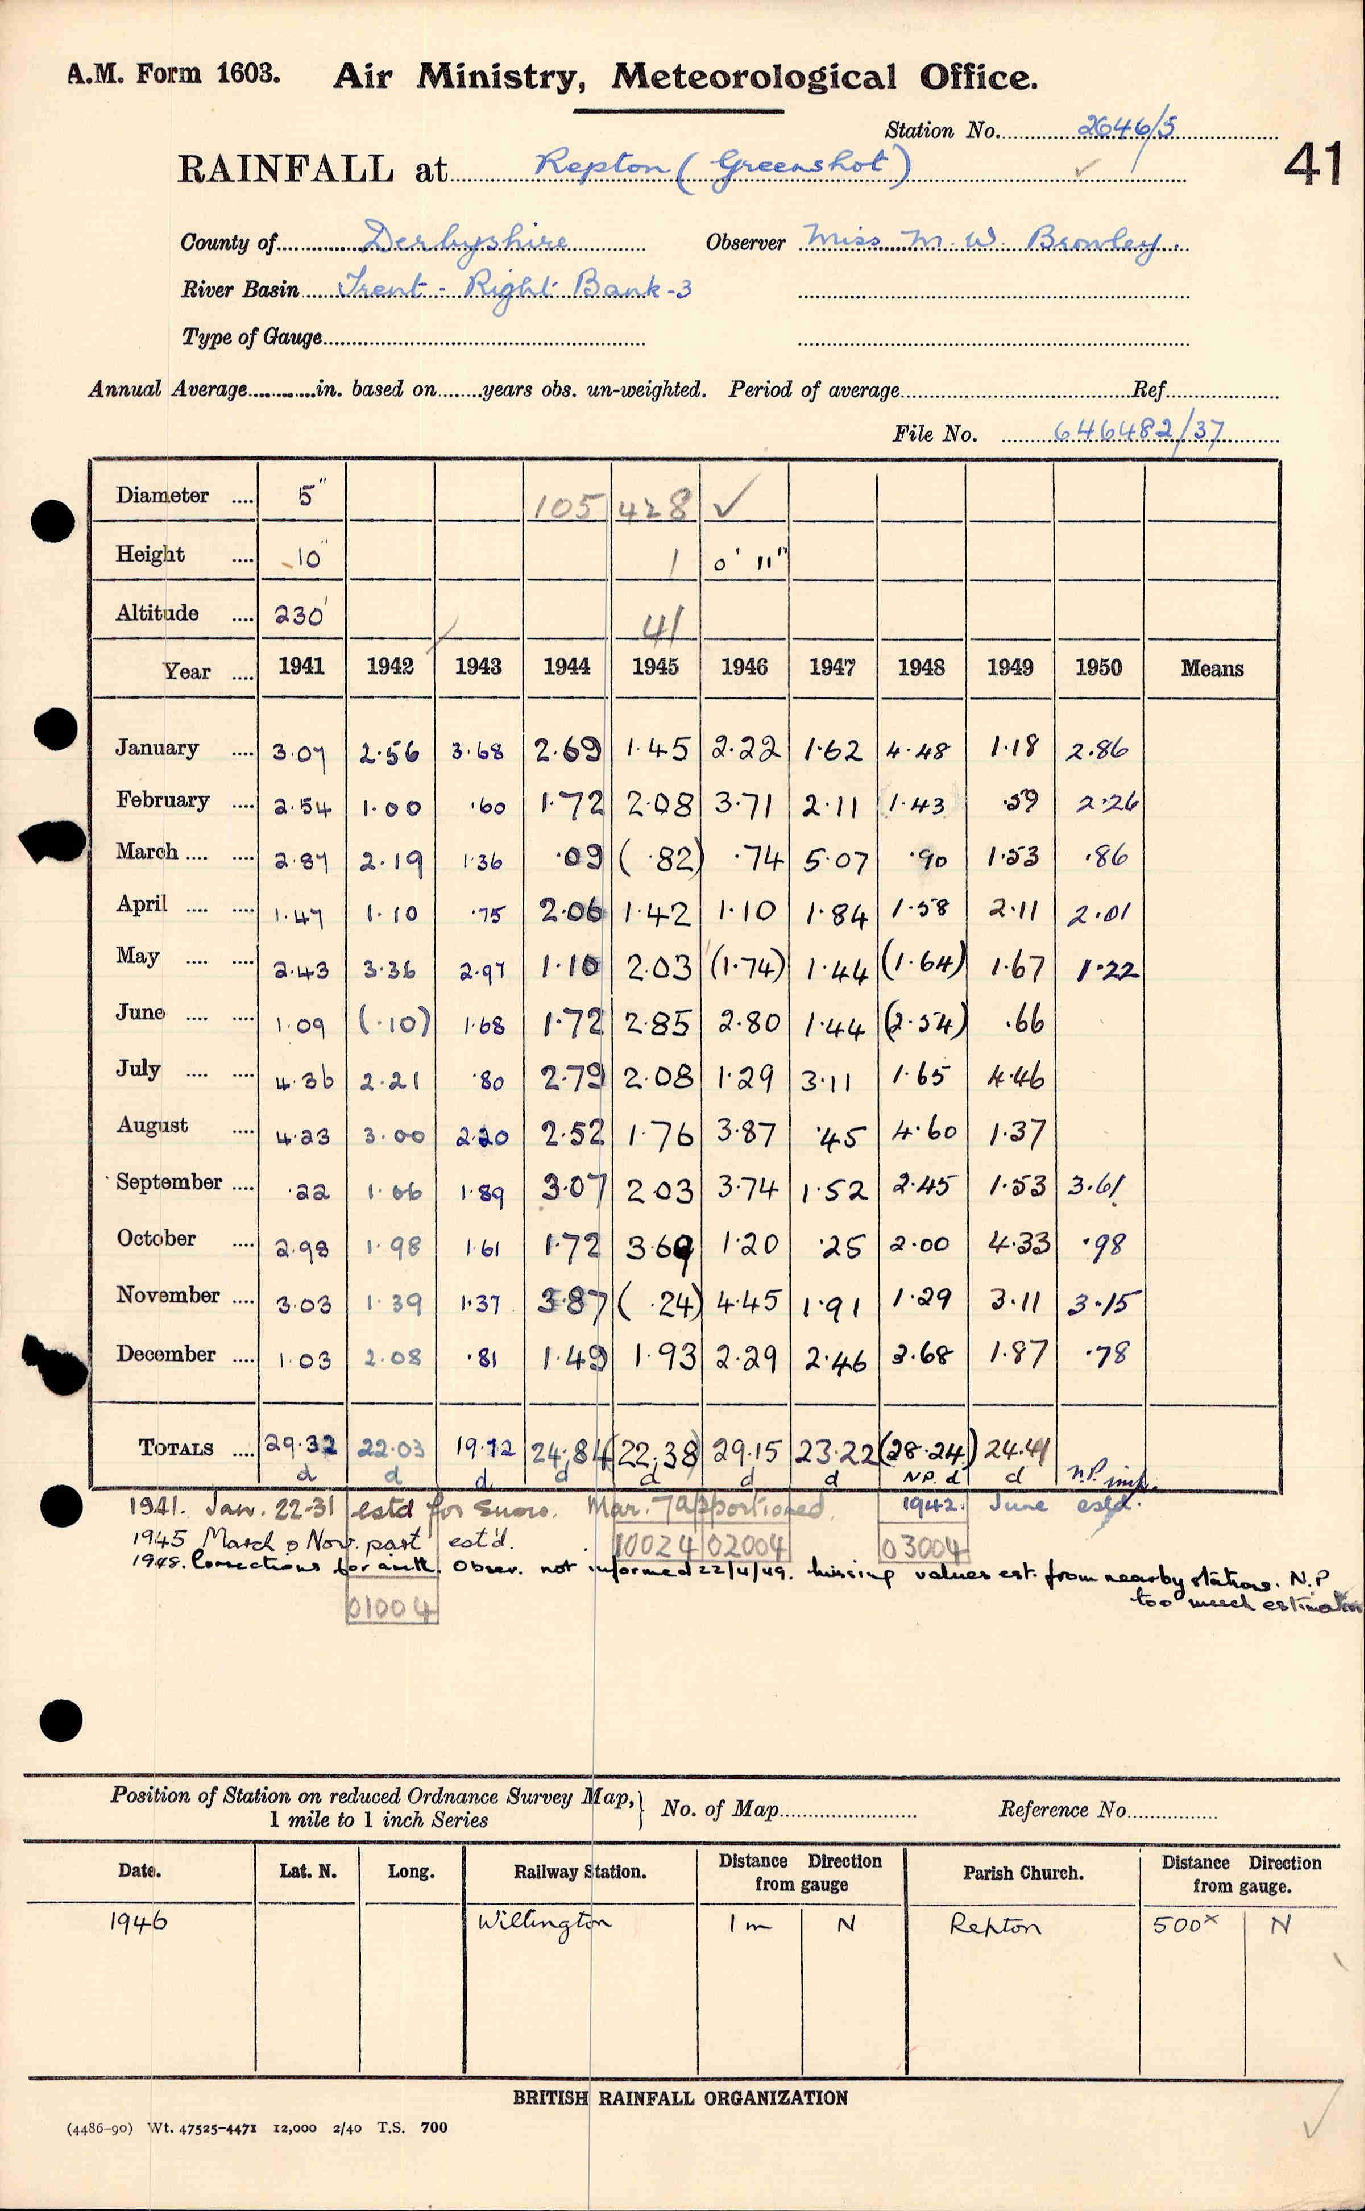 A.M. Form 1603. Air Ministry, Meteorological Office.
Station No. 2646/5
41
RAINFALL at Repton (Greenshot)
County of Derbyshire Observer Miss M. W. Bromley.
River Basin Trent - Right Bank-3
Type of Gauge
Annual Average in. based on years obs. un-weighted. Period of average Ref.
File No. 646482/37
Diameter 5" 105 428 ✓
Height 10" 1 0' 11"
Altitude 230' 41
Year 1941 1942 1943 1944 1945 1946 1947 1948 1949 1950 Means
January 3.07 2.56 3.68 2.69 1.45 2.22 1.62 4.48 1.18 2.86
February 2.54 1.00 .60 1.72 2.08 3.71 2.11 1.43 .59 2.26
March 2.87 2.19 1.36 .09 (.82) .74 5.07 .90 1.53 .86
April 1.47 1.10 .75 2.06 1.42 1.10 1.84 1.58 2.11 2.01
May 2.43 3.36 2.97 1.10 2.03 (1.74) 1.44 (1.64) 1.67 1.22
June 1.09 (.10) 1.68 1.72 2.85 2.80 1.44 (2.54) .66
July 4.36 2.21 .80 2.79 2.08 1.29 3.11 1.65 4.46
August 4.23 3.00 2.20 2.52 1.76 3.87 .45 4.60 1.37
September .22 1.06 1.89 3.07 2.03 3.74 1.52 2.45 1.53 3.61
October 2.98 1.98 1.61 1.72 3.69 1.20 .25 2.00 4.33 .98
November 3.03 1.39 1.37 3.87 (.24) 4.45 1.91 1.29 3.11 3.15
December 1.03 2.08 .81 1.49 1.93 2.29 2.46 3.68 1.87 .78
TOTALS 29.32 22.03 19.72 24.84 (22.38) 29.15 23.22 (28.24) 24.41
d d d d d d d N.P. d d N.P. inc.
1941. Jan. 22-31 estd for snow. Mar. 7 apportioned. 1942. June estd.
1945 March & Nov. part est'd. 10024 02004 03004
1948. Corrections for arith. Obser. not informed 22/4/49. Missing values est. from nearby stations. N.P
too much estimation
01004
Position of Station on reduced Ordnance Survey Map, No. of Map Reference No.
1 mile to 1 inch Series
Date. Lat. N. Long. Railway Station. Distance Direction from gauge Parish Church. Distance Direction from gauge.
1946 Willington 1 m N Repton 500x N
BRITISH RAINFALL ORGANIZATION
(4486-90) Wt. 47525-4471 12,000 2/40 T.S. 700